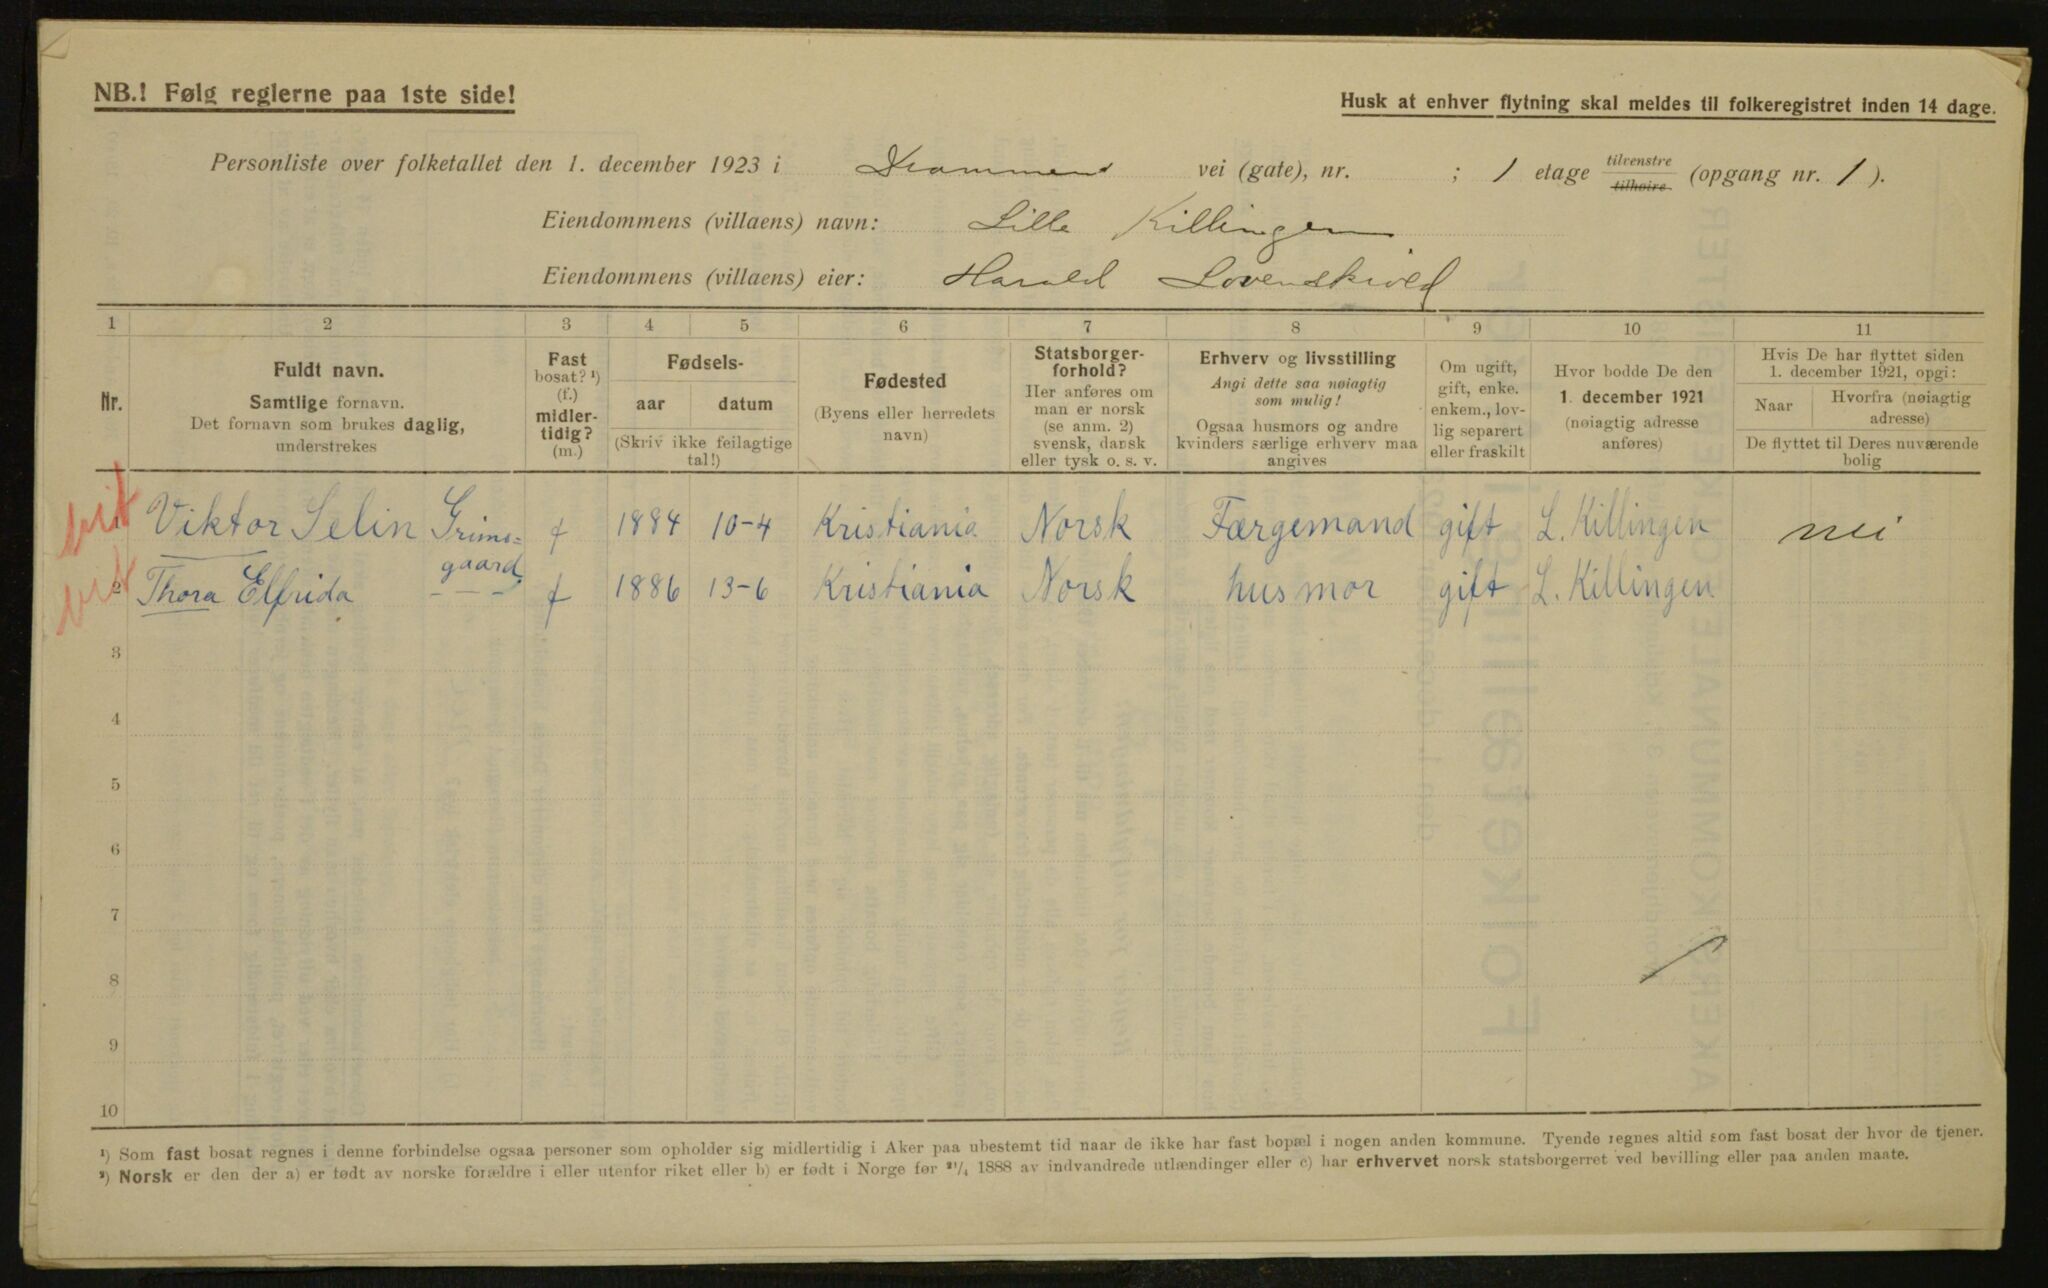 NB.! Følg reglerne paa 1ste side!
Husk at enhver flytning skal meldes til folkeregistret inden 14 dage.
Personliste over folketallet den 1. december 1923 i Drammens vei (gate), nr. ; 1 etage tilvenstre tilhøire (opgang nr. 1).
Eiendommens (villaens) navn: Lille Killingen
Eiendommens (villaens) eier: Harald Løvenskiold
1 2 3 4 5 6 7 8 9 10 11
Nr.
Fuldt navn.
Samtlige fornavn.
Det fornavn som brukes daglig,
understrekes
Fast
bosat? ¹)
(f.)
midler-
tidig?
(m.)
Fødsels-
aar datum
(Skriv ikke feilagtige
tal!)
Fødested
(Byens eller herredets
navn)
Statsborger-
forhold?
Her anføres om
man er norsk
(se anm. 2)
svensk, dansk
eller tysk o. s. v.
Erhverv og livsstilling
Angi dette saa nøiagtig
som mulig!
Ogsaa husmors og andre
kvinders særlige erhverv maa
angives
Om ugift,
gift, enke.
enkem., lov-
lig separert
eller fraskilt
Hvor bodde De den
1. december 1921
(nøiagtig adresse
anføres)
Hvis De har flyttet siden
1. december 1921, opgi:
Naar
Hvorfra (nøiagtig
adresse)
De flyttet til Deres nuværende
bolig
1 Viktor Selin Grims- f 1884 10-4 Kristiania Norsk Færgemand gift L. Killingen nei
gaard
2 Thora Elfrida - - - f 1886 13-6 Kristiania Norsk husmor gift L. Killingen
3
4
5
6
7
8
9
10
¹) Som fast bosat regnes i denne forbindelse ogsaa personer som opholder sig midlertidig i Aker paa ubestemt tid naar de ikke har fast bopæl i nogen anden kommune. Tyende regnes altid som fast bosat der hvor de tjener.
²) Norsk er den der a) er født av norske forældre i eller utenfor riket eller b) er født i Norge før ²¹/₄ 1888 av indvandrede utlændinger eller c) har erhvervet norsk statsborgerret ved bevilling eller paa anden maate.